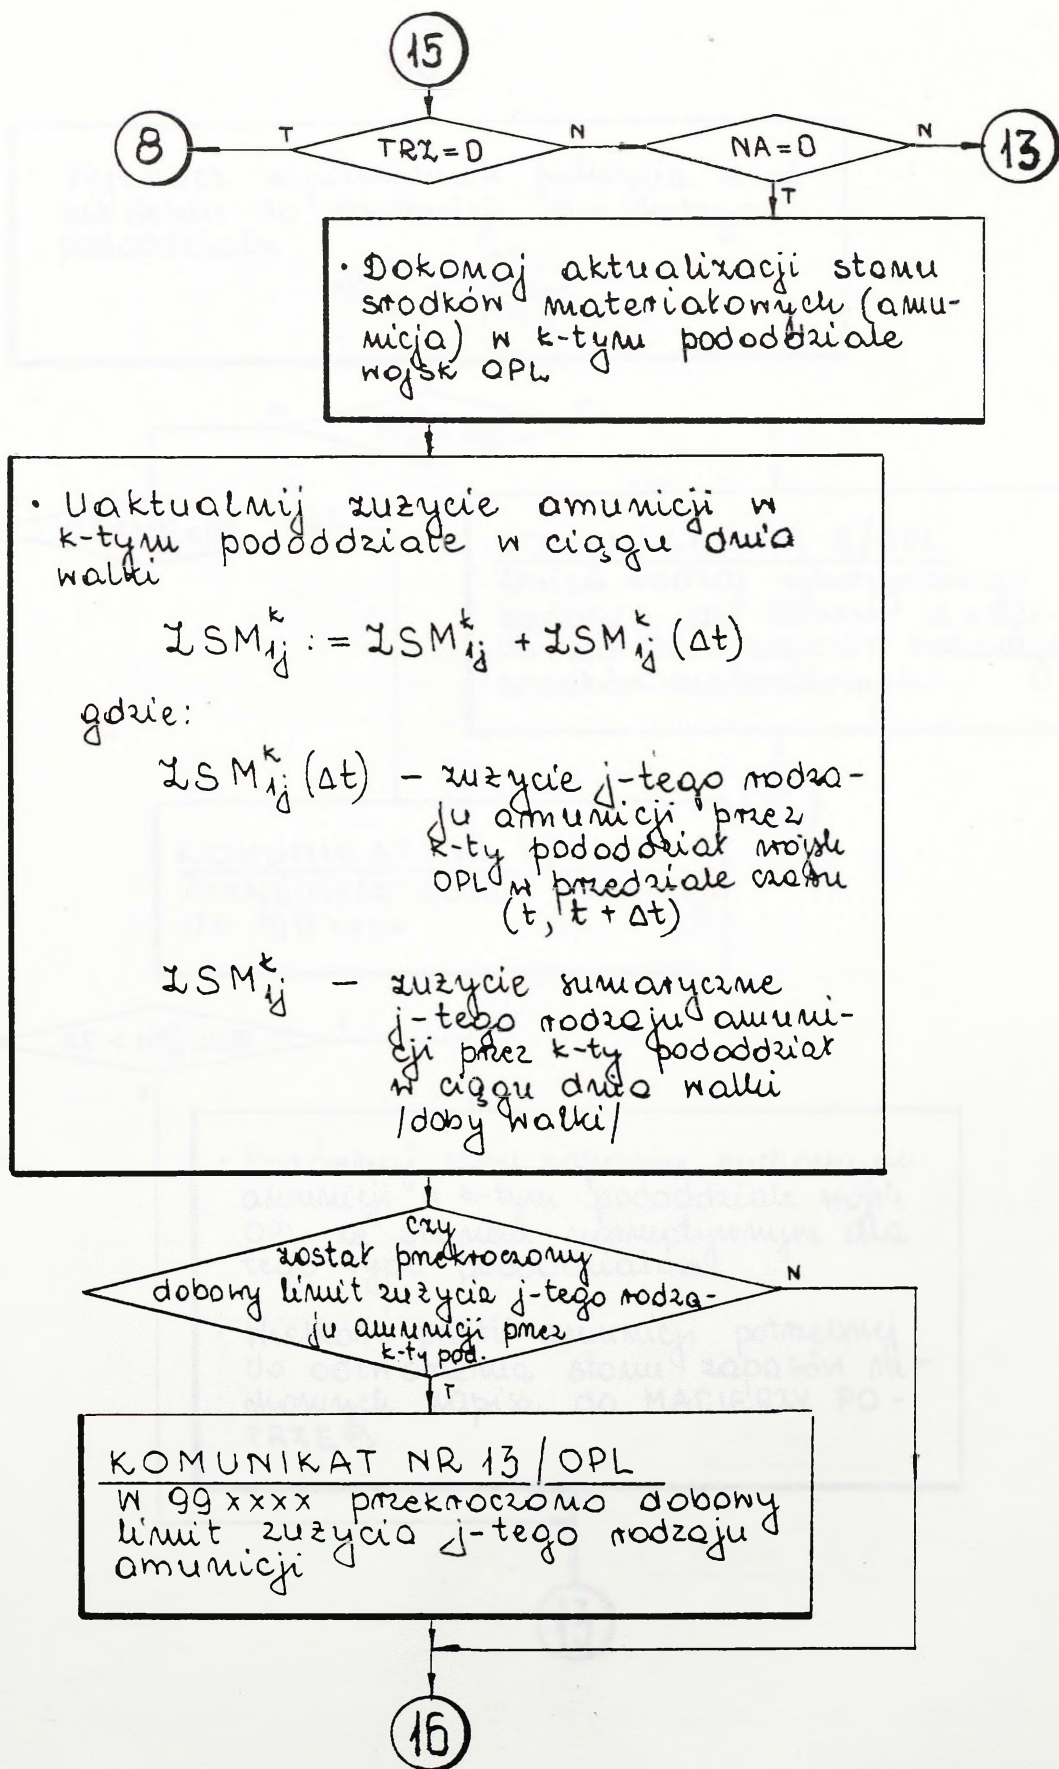 15
8
T
TRZ=0
N
NA=0
N
13
T
· Dokonaj aktualizacji stanu
środków materiałowych (amu-
nicja) w k-tym pododdziale
wojsk OPL
· Uaktualnij zużycie amunicji w
k-tym pododdziale w ciągu dnia
walki
ZSM₁ⱼᵏ := ZSM₁ⱼᵏ + ZSM₁ⱼᵏ (Δt)
gdzie:
ZSM₁ⱼᵏ (Δt) - zużycie j-tego rodza-
ju amunicji przez
k-ty pododdział wojsk
OPL w przedziale czasu
(t, t + Δt)
ZSM₁ⱼᵏ - zużycie sumaryczne
j-tego rodzaju amuni-
cji przez k-ty pododdział
w ciągu dnia walki
/doby walki/
czy
został przekroczony
dobowy limit zużycia j-tego rodza-
ju amunicji przez
k-ty pod.
N
T
KOMUNIKAT NR 13/OPL
W 99xxxx przekroczono dobowy
limit zużycia j-tego rodzaju
amunicji
16